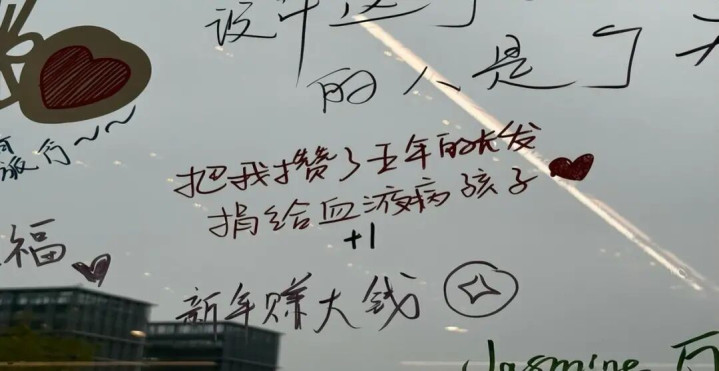 设计这
的人是
旅行~~
把我攒了五年的长发
捐给血液病孩子
+1
福
新年赚大钱
Jasmine